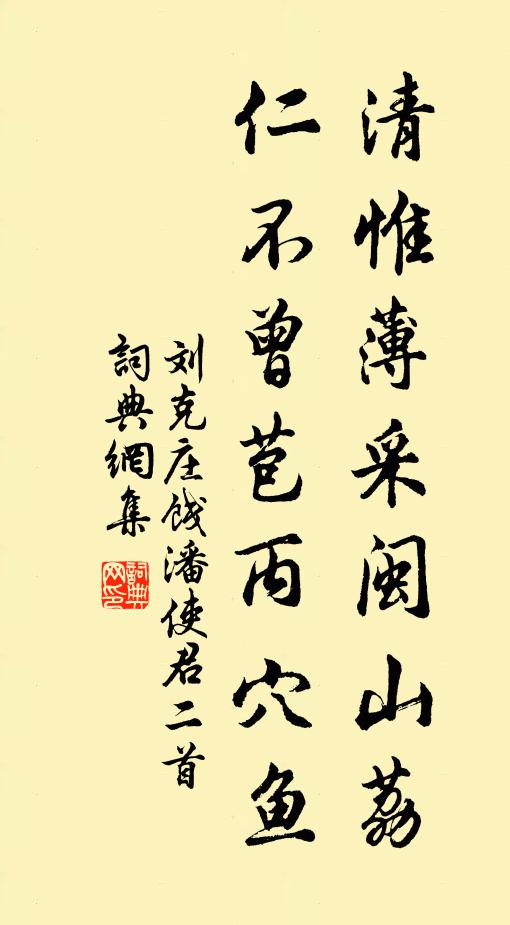 清惟薄采闽山荔
仁不曾苞丙穴鱼
刘克庄饯潘使君二首
詞典網集
詞典网印